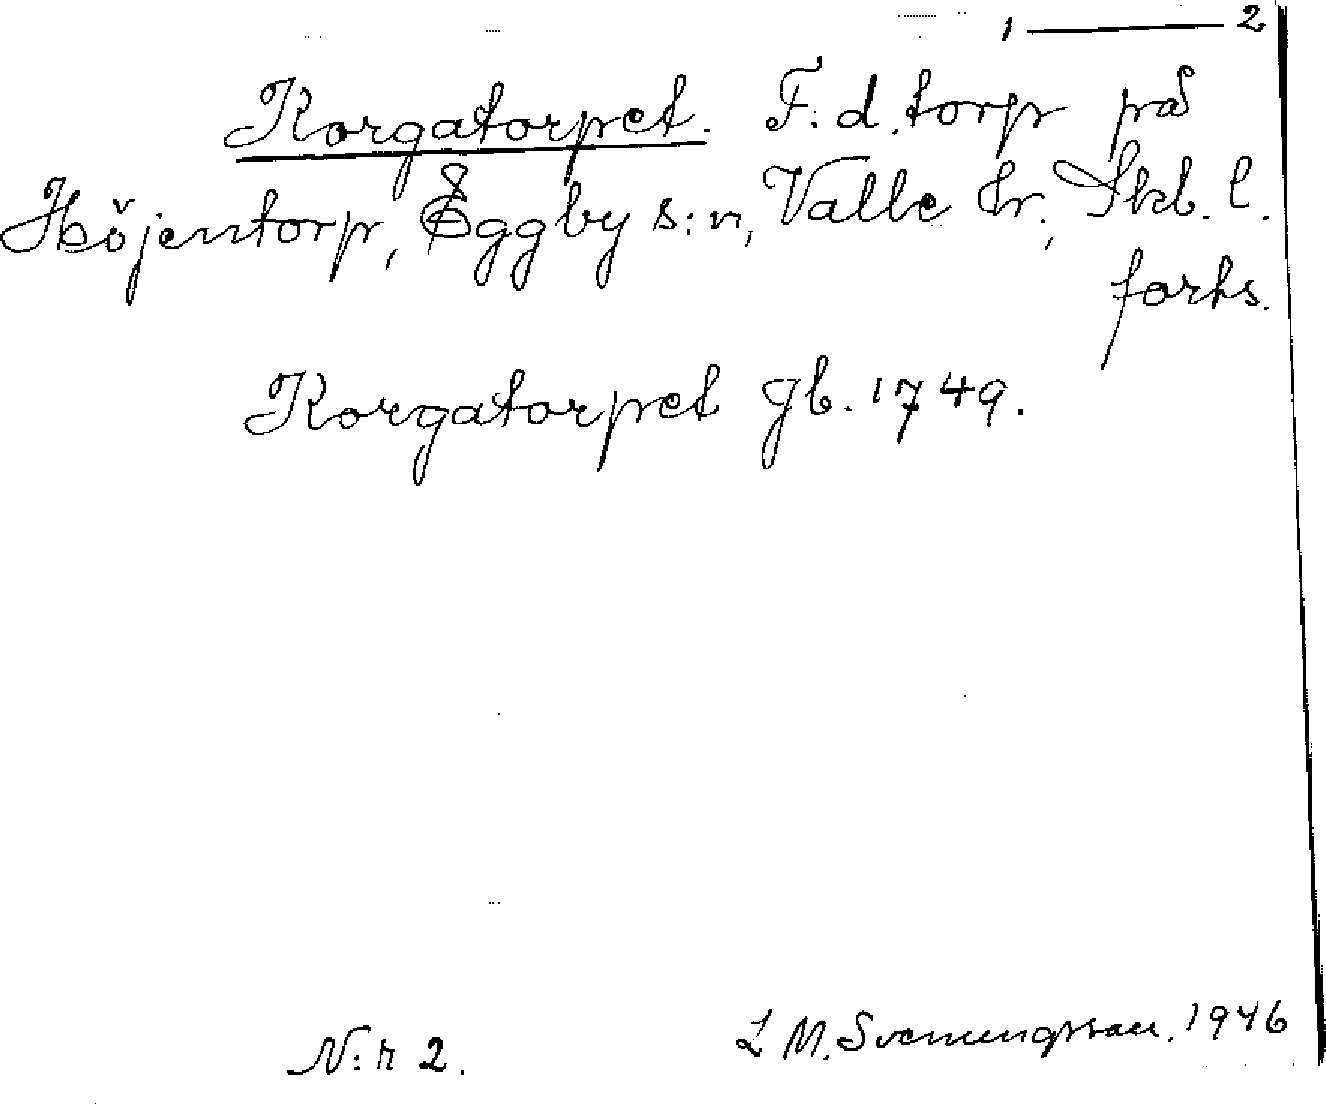 1 — 2
Korgatorpet. F. d. torp på
Höjentorp, Eggby s:n, Valle hr, Skb. l.
forts.
Korgatorpet gb. 1749.
N:r 2.
L M. Svenungsson. 1946